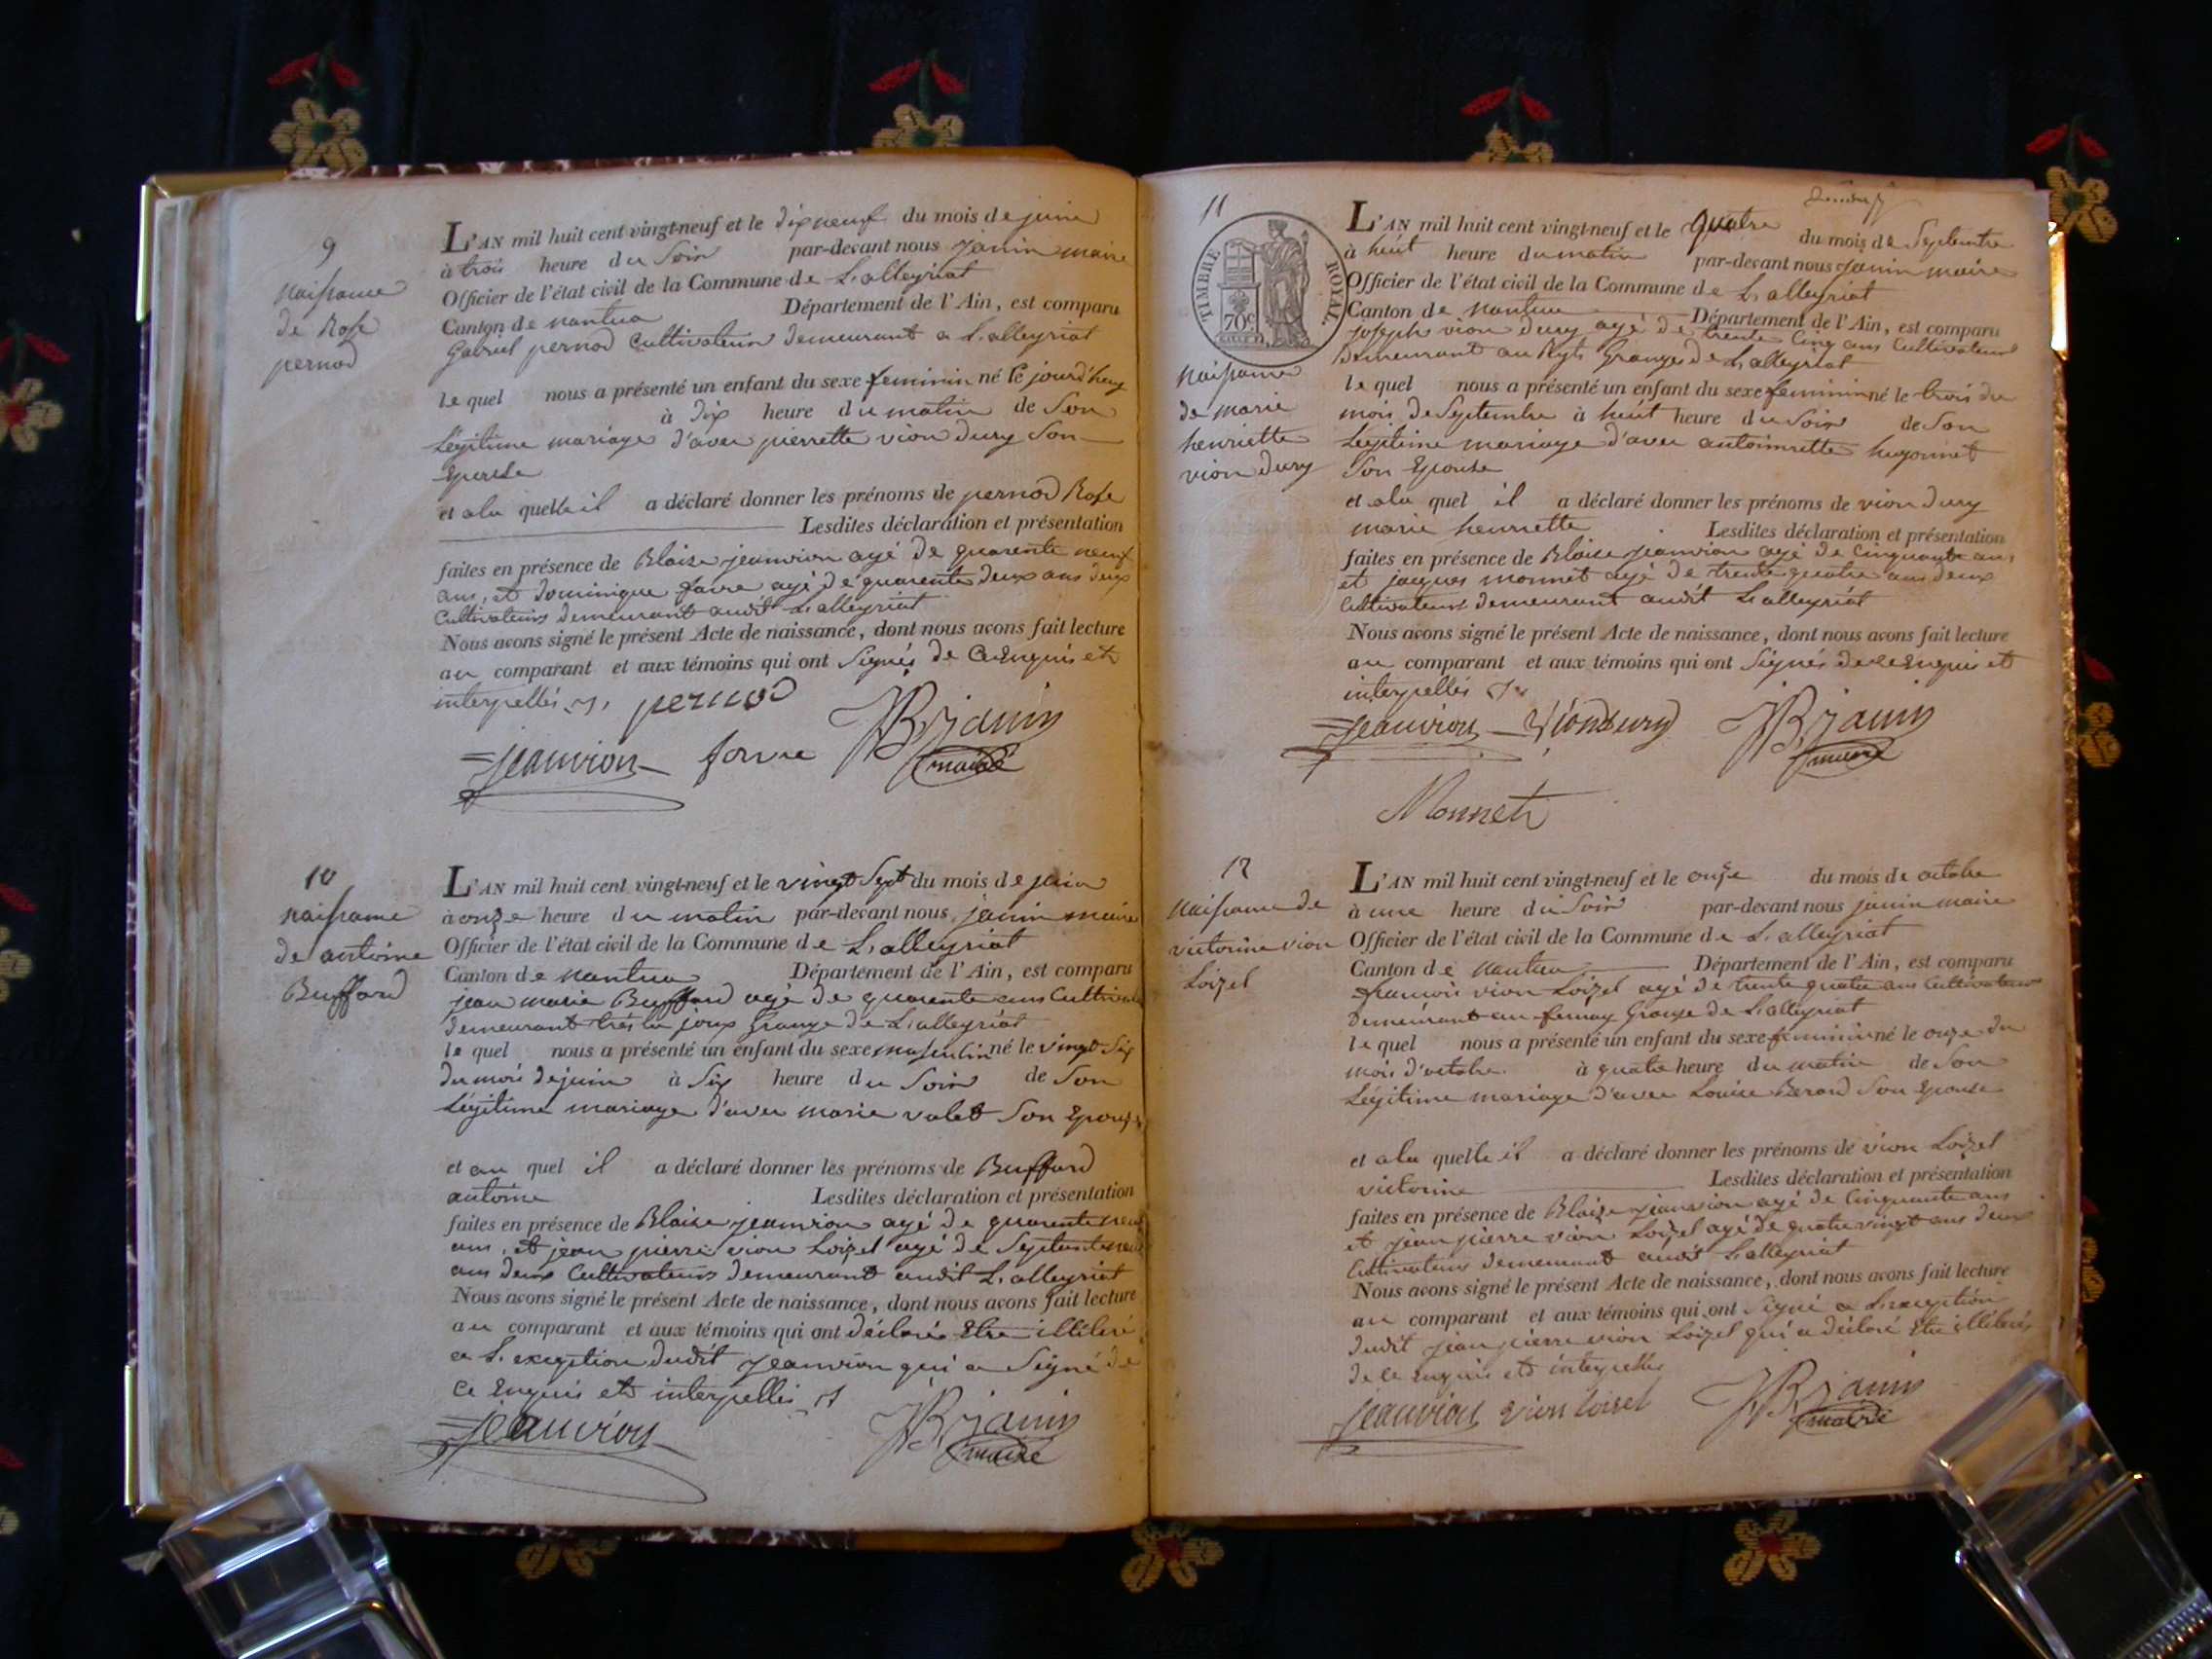 9
naissance
de Rose
pernod
L'AN mil huit cent vingt-neuf et le dix neuf du mois de juin
à trois heure du Soir par-devant nous janin maire
Officier de l'état civil de la Commune de L'alleyriat
Canton de nantua Département de l'Ain, est comparu
Gabriel pernod Cultivateur demeurant a L'alleyriat
le quel nous a présenté un enfant du sexe feminin né le jourd'huy
à dix heure du matin de Son
Légitime mariage d'avec pierrette vion dury Son
Epouse
et a la quelle il a déclaré donner les prénoms de pernod Rose
Lesdites déclaration et présentation
faites en présence de Blaise jeanvion agé de quarente neuf
ans, et dominique favre agé de quarente deux ans deux
Cultivateurs demeurant audit L'alleyriat
Nous avons signé le présent Acte de naissance, dont nous avons fait lecture
au comparant et aux témoins qui ont Signés de ce Enquis et
interpellés pernod
jeanvion favre JB janin
maire
10
naissance
de antoine
Buffard
L'AN mil huit cent vingt-neuf et le vingt Sept du mois de juin
à onze heure du matin par-devant nous janin maire
Officier de l'état civil de la Commune de L'alleyriat
Canton de nantua Département de l'Ain, est comparu
jean marie Buffard agé de quarente ans Cultivateur
demeurant très la joux Grange de L'alleyriat
le quel nous a présenté un enfant du sexe masculin né le vingt Six
du mois de juin à Six heure du Soir de Son
Légitime mariage d'avec marie valet Son Epouse
et au quel il a déclaré donner les prénoms de Buffard
antoine Lesdites déclaration et présentation
faites en présence de Blaise jeanvion agé de quarente neuf
ans, et jean pierre vion Loizel agé de Septente neuf
ans deux Cultivateurs demeurant audit L'alleyriat
Nous avons signé le présent Acte de naissance, dont nous avons fait lecture
au comparant et aux témoins qui ont déclarés Etre illitéré
a L'exception dudit jeanvion qui a Signé de
ce Enquis et interpellés
jeanvion JB janin
maire
11
TIMBRE ROYAL
70c
naissance
de marie
henriette
vion dury
L'AN mil huit cent vingt-neuf et le quatre du mois de Septembre
à huit heure du matin par-devant nous janin maire
Officier de l'état civil de la Commune de L'alleyriat
Canton de nantua Département de l'Ain, est comparu
joseph vion dury agé de trente Cinq ans Cultivateur
demeurant au Granges de L'alleyriat
le quel nous a présenté un enfant du sexe feminin né le trois du
mois de Septembre à huit heure du Soir de Son
Légitime mariage d'avec antoinette hugonnet
Son Epouse
et a la quel il a déclaré donner les prénoms de vion dury
marie henriette Lesdites déclaration et présentation
faites en présence de Blaise jeanvion agé de Cinquante ans
et jacques monnet agé de trente quatre ans deux
Cultivateurs demeurant audit L'alleyriat
Nous avons signé le présent Acte de naissance, dont nous avons fait lecture
au comparant et aux témoins qui ont Signés de ce Enquis et
interpellés
jeanvion Viondury JB janin
maire
Monnet
12
naissance de
victorine vion
Loizel
L'AN mil huit cent vingt-neuf et le onze du mois de octobre
à une heure du Soir par-devant nous janin maire
Officier de l'état civil de la Commune de L'alleyriat
Canton de nantua Département de l'Ain, est comparu
francois vion Loizel agé de trente quatre ans Cultivateur
demeurant au fernay Grange de L'alleyriat
le quel nous a présenté un enfant du sexe feminin né le onze du
mois d'octobre à quatre heure du matin de Son
Légitime mariage d'avec Louise Berod Son Epouse
et a la quelle il a déclaré donner les prénoms de vion Loizel
victorine Lesdites déclaration et présentation
faites en présence de Blaize jeanvion agé de Cinquante ans
et jean pierre vion Loizel agé de quatre vingt ans deux
Cultivateurs demeurant audit L'alleyriat
Nous avons signé le présent Acte de naissance, dont nous avons fait lecture
au comparant et aux témoins qui ont Signé a L'exception
dudit jean pierre vion Loizel qui a déclaré Etre illitéré
de ce Enquis et interpellés
jeanvion vion loisel JB janin
maire